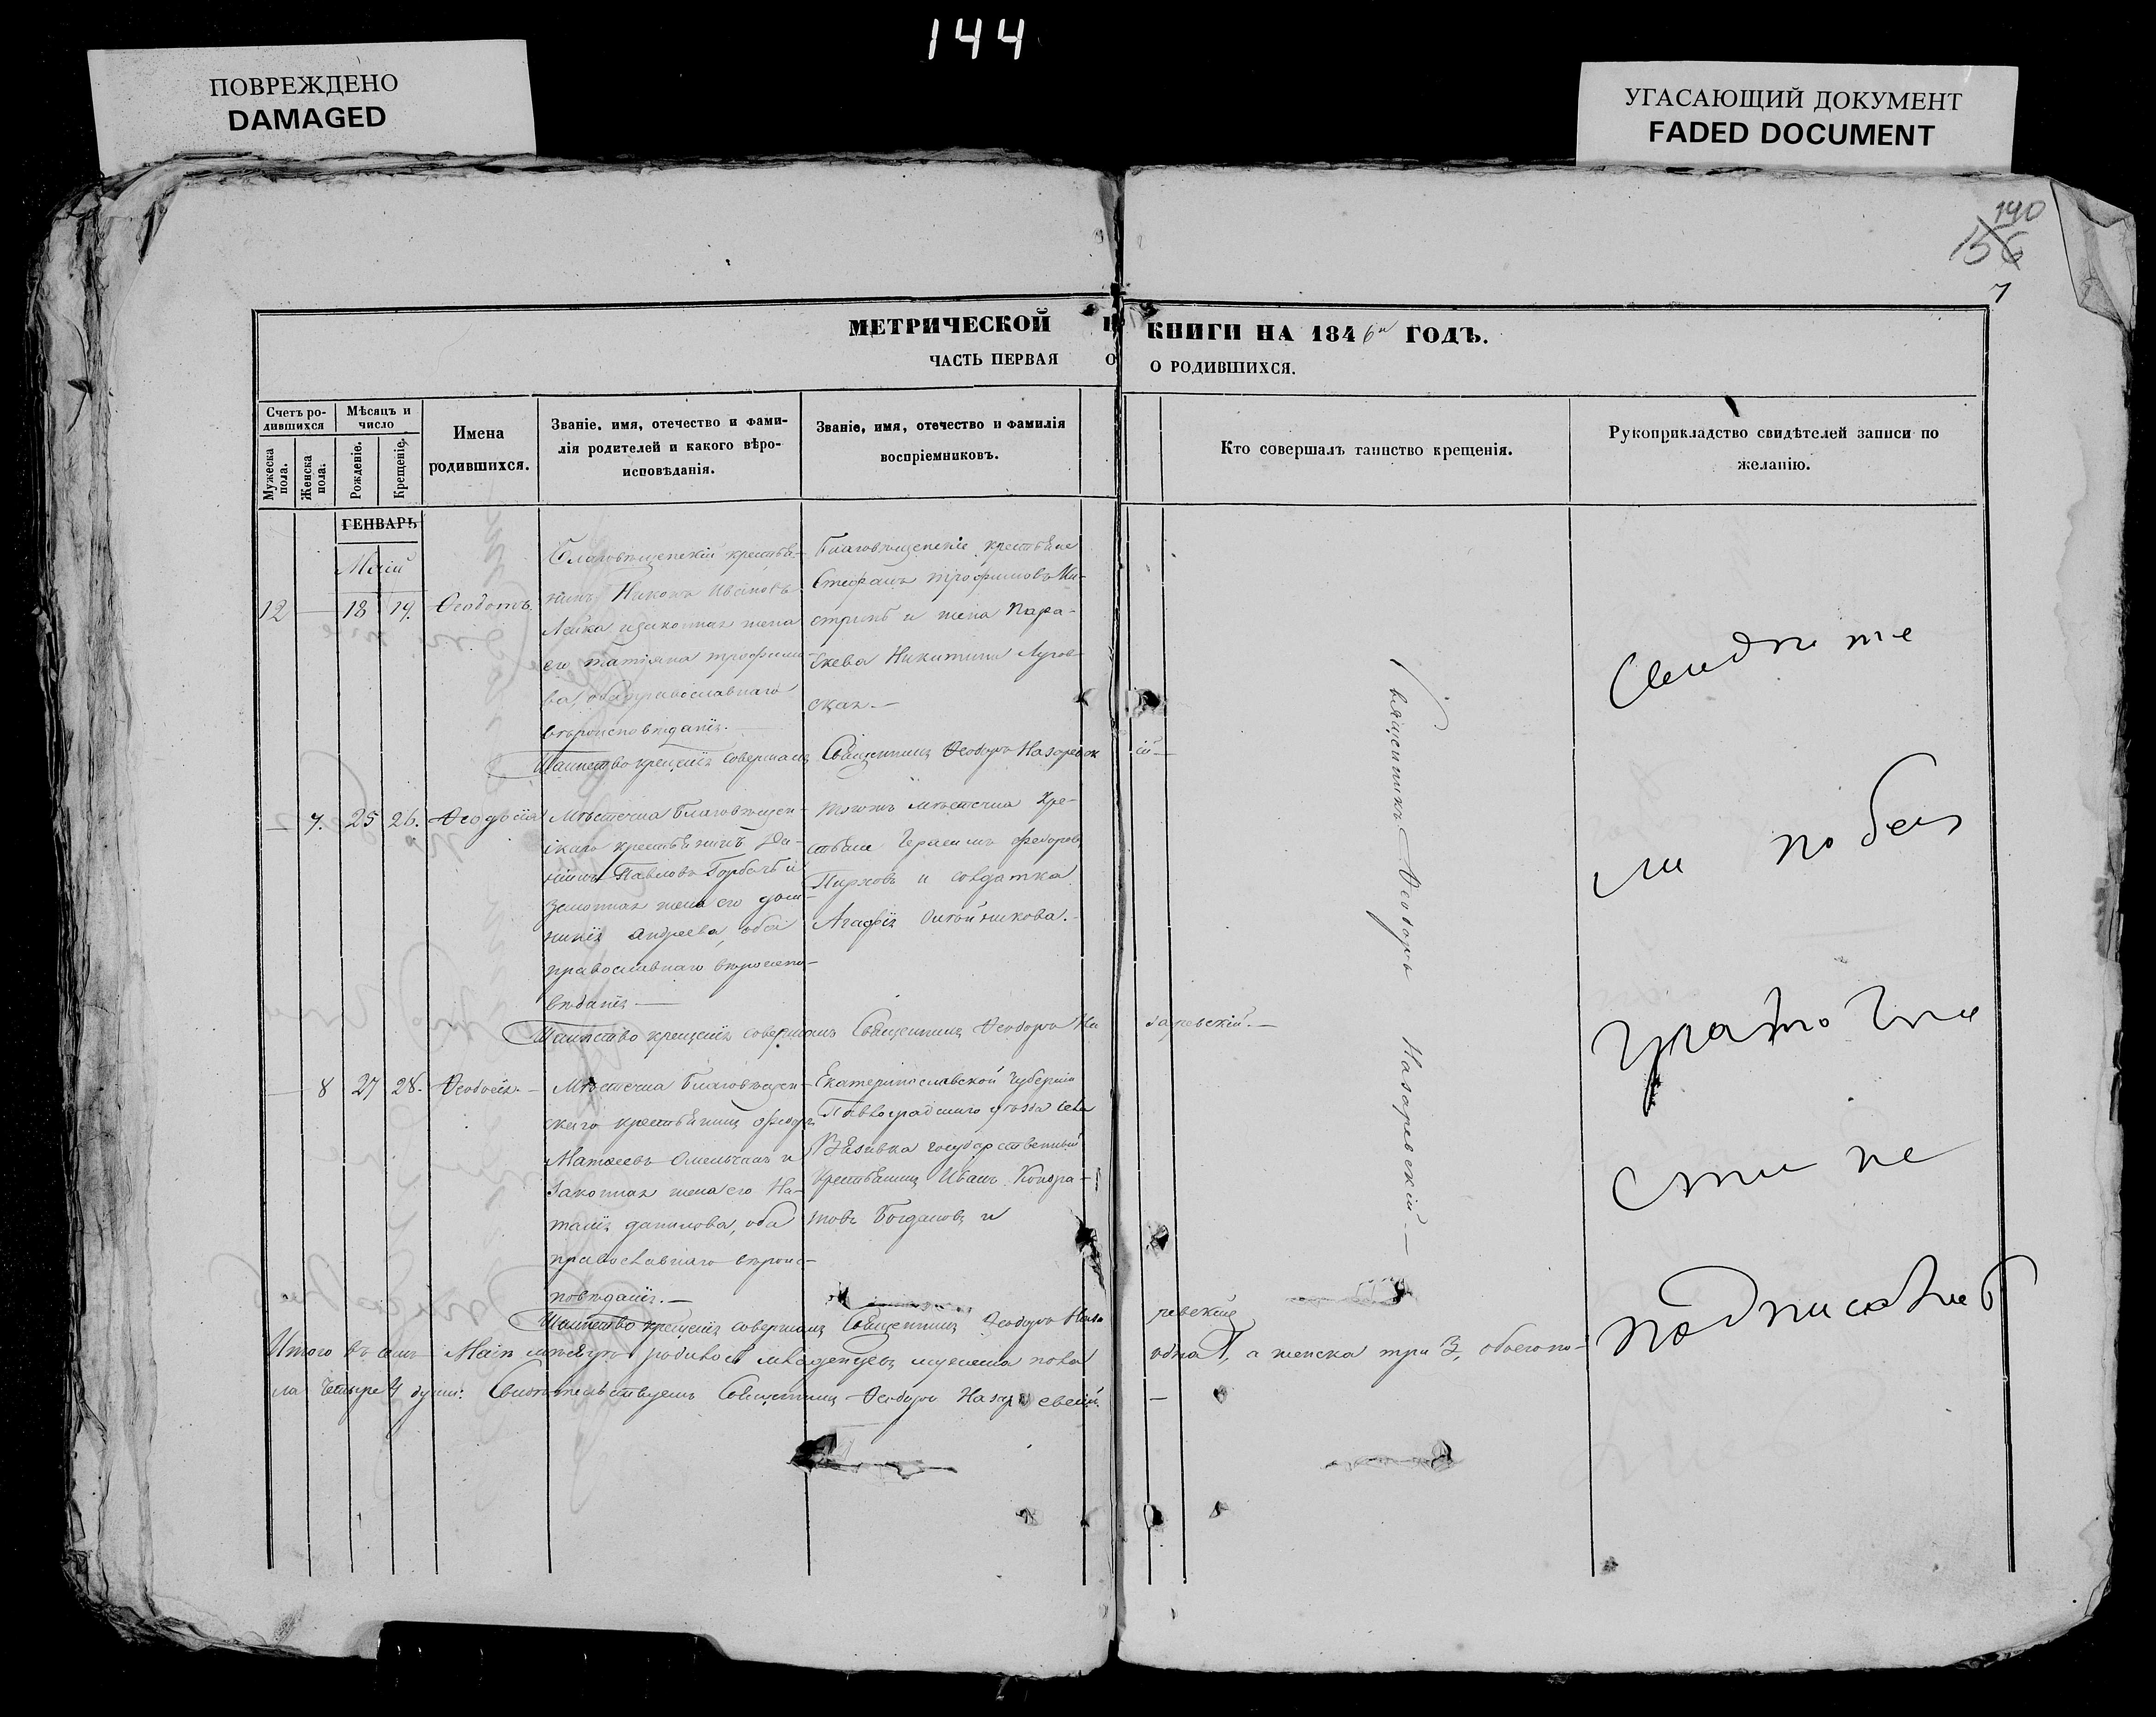 144
ПОВРЕЖДЕНО
DAMAGED
УГАСАЮЩИЙ ДОКУМЕНТ
FADED DOCUMENT
140
156
7
МЕТРИЧЕСКОЙ КНИГИ НА 1846й ГОДЪ.
ЧАСТЬ ПЕРВАЯ О РОДИВШИХСЯ.
Счетъ ро-
дившихся
Мужеска пола.
Женска пола.
Мѣсяцъ и
число
Рожденіе.
Крещеніе.
Имена
родившихся.
Званіе, имя, отечество и фами-
лія родителей и какого вѣро-
исповѣданія.
Званіе, имя, отечество и фамилія
воспріемниковъ.
Кто совершалъ таинство крещенія.
Рукоприкладство свидѣтелей записи по
желанію.
ГЕНВАРЬ
Маій
12 — 18 19. Ѳеодотъ.
Благовѣщенскій крестья-
нинъ Никонъ Ивановъ
Лейка и законная жена
его Татіяна Трофимо-
ва, оба православнаго
вѣроисповѣданія.
Благовѣщенскіе крестьяне
Стефанъ Трофимовъ
и жена Пара-
скева Никитина
ская.—
Таинство крещенія совершалъ Священникъ Ѳеодоръ Назаревскій—
— 7. 25 26. Ѳеодосія
Мѣстечка Благовѣщен-
скаго крестьянинъ
Павловъ Горбачъ и
законная жена его Дом-
никія Андреева, оба
православнаго вѣроиспо-
вѣданія—
тогожъ мѣстечка кре-
стьяне Герасимъ Федоровъ
и солдатка
Агафія
Таинство крещенія совершалъ Священникъ Ѳеодоръ Назаревскій.—
— 8 27 28. Ѳеодосія—
Мѣстечка Благовѣщен-
скаго крестьянинъ Феодоръ
Матѳеевъ Омельченко и
законная жена его На-
талія Данилова, оба
православнаго вѣроис-
повѣданія.—
Екатеринославской Губерніи
Павлоградскаго уѣзда села
Вязовка государственный
крестьянинъ Иванъ Кондра-
товъ Богдановъ и
Таинство крещенія совершалъ Священникъ Ѳеодоръ Назаревскій
Священникъ Ѳеодоръ Назаревскій—
Итого въ семъ Маіи мѣсяцѣ родилось младенцевъ мужеска пола одна 1, а женска три 3, обоего по-
ла четыре 4 души: Свидѣтельствуетъ Священникъ Ѳеодоръ Назаревскій. —
Свидѣте
ли по без
грамотно
сти не
подписались